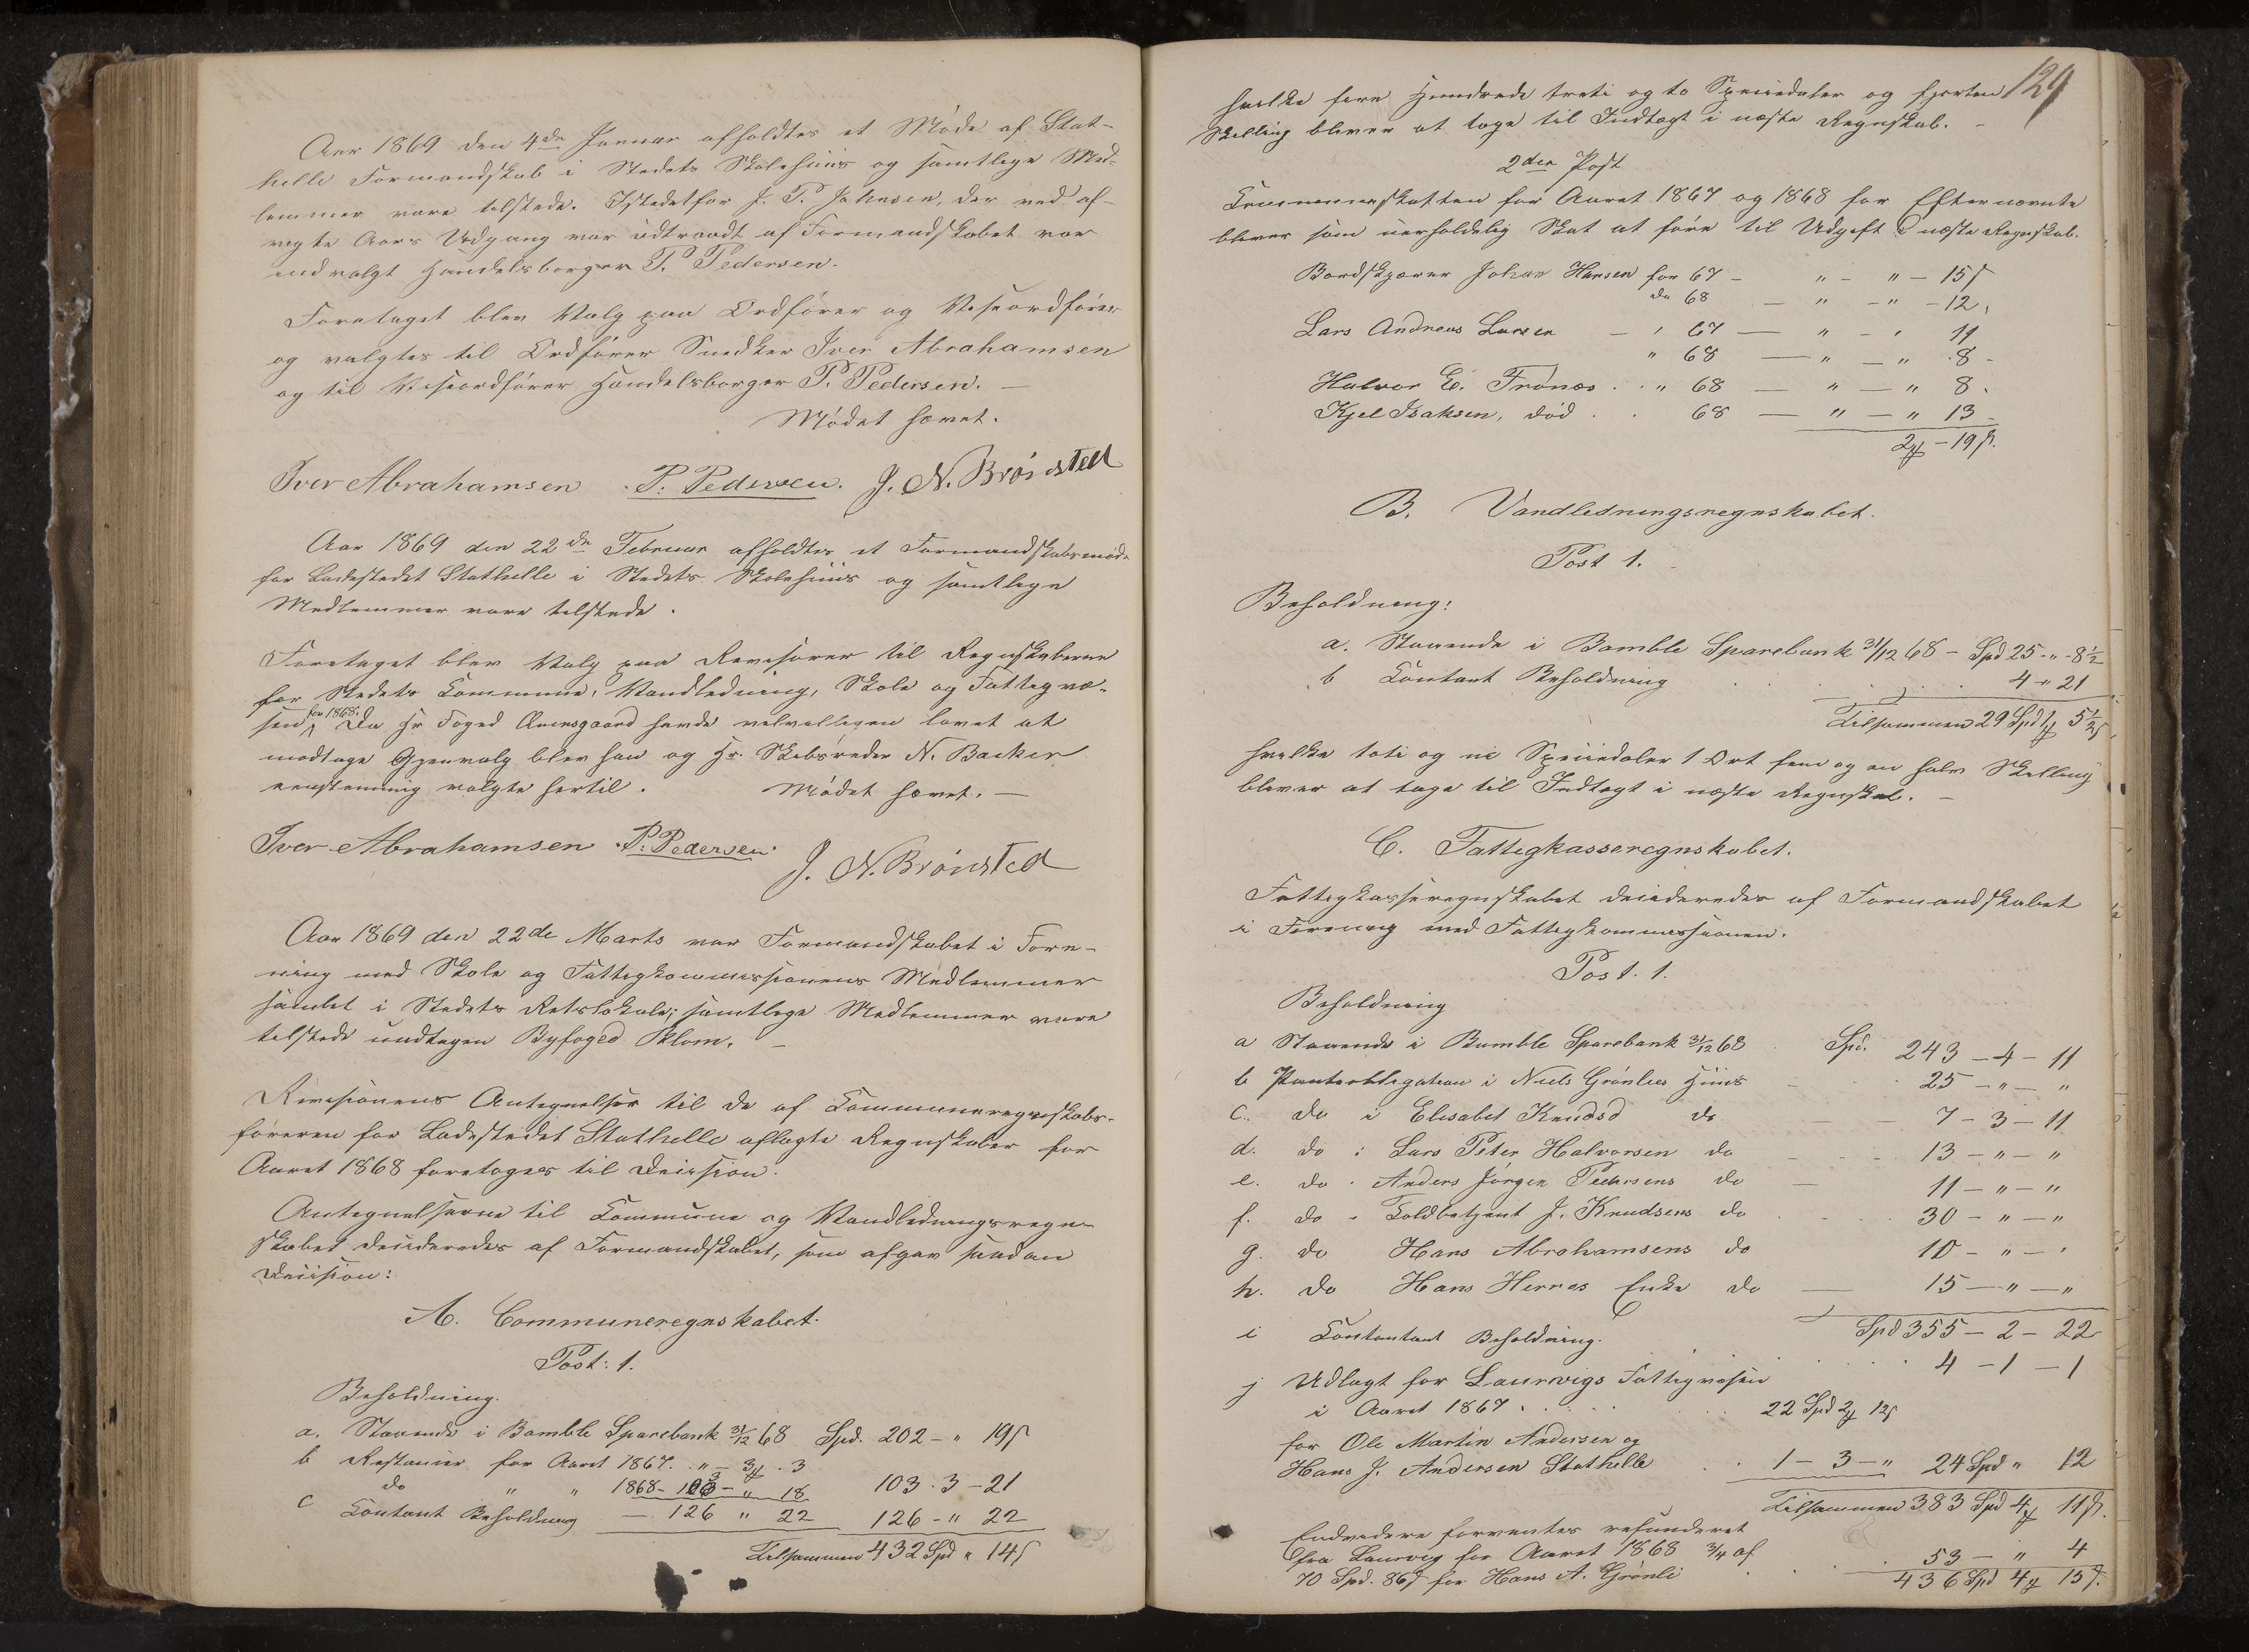 Aar 1869 den 4de Januar afholdtes et Møde af Stat-
helle Formandskab i Stedets Skolehuus og samtlige Med-
lemmer vare tilstede. Istedetfor J. P. Johnsen, der ved af-
vigte Aars Udgang var udtraadt af Formandskabet var
indvalgt Handelsborger P. Pedersen.
Foretaget blev Valg paa Ordfører og Viseordfører
og valgtes til Ordfører Snedker Iver Abrahamsen
og til Viseordfører Handelsborger P. Pedersen. —
Mødet hævet.
Iver Abrahamsen P. Pedersen. J. N. Brønsted
Aar 1869 den 22de Februar afholdtes et Formandskabsmøde
for Ladestedet Stathelle i Stedets Skolehuus og samtlige
Medlemmer vare tilstede.
Foretaget blev Valg paa Revisorer til Regnskaberne
for Stedets Commune, Vandledning, Skole og Fattigvæ-
sen for 1868. Da Hr Foged Aamsgaard havde velvilligen lovet at
modtage Gjenvalg blev han og Hr. Skibsreder N. Backer
eenstemmig valgte hertil. Mødet hævet. —
Iver Abrahamsen P. Pedersen.
J. N. Brønsted
Aar 1869 den 22de Marts var Formandskabet i Fore-
ning med Skole og Fattigkommissionens Medlemmer
samlet i Stedets Retslokale; samtlige Medlemmer vare
tilstede undtagen Byfoged Blom. —
Revisionens Antegnelser til de af Communeregnskabs-
føreren for Ladestedet Stathelle aflagte Regnskaber for
Aaret 1868 foretoges til Decision.
Antegnelserne til Commune og Vandledningsregn-
skabet decideredes af Formandskabet, som afgav saadan
Decision:
A. Communeregnskabet.
Post: 1.
Beholdning.
a. Staaende i Bamble Sparebank 31/12 68 Spd. 202 - " 19 s
b Restancer for Aaret 1867. " - 3 . 3
do " " 1868 - 103 - " 18 103 . 3 - 21
c Contant Beholdning — 126 " 22 126 - " 22
Tilsammen 432 Spd " 14 s
129
hvilke fire Hundrede treti og to Speciedaler og fjorten
Skilling bliver at tage til Indtægt i næste Regnskab. —
2den Post
Communeskatten for Aaret 1867 og 1868 for Efternævnte
bliver som uerholdelig Skat at føre til Udgift i næste Regnskab.
Bordskjærer Johan Hansen for 67 - " - " - 15 s
do 68 — " - " - 12,
Lars Andreas Larsen — " 67 — " - " 11
" 68 — " — " 8 -
Halvor E. Trones . . " 68 — " — " 8.
Kjel Isaksen, død . . 68 — " — " 13 -
2 - 19 s.
B. Vandledningsregnskabet.
Post 1.
Beholdning:
a. Staaende i Bamble Sparebank 31/12 68 - Spd 25 - " - 8 1/2
b Contant Beholdning . . . . 4 - " 21
Tilsammen 29 Spd 1 5 1/2 s
hvilke toti og ni Speciedaler 1 Ort fem og en halv Skilling
bliver at tage til Indtægt i næste Regnskab. —
C. Fattigkasseregnskabet.
Fattigkasseregnskabet decideredes af Formandskabet
i Forening med Fattigkommissionen.
Post. 1.
Beholdning
a Staaende i Bamble Sparebank 31/12 68 Spd. 243 - 4 - 11
b Pantobligation i Niels Grønlies Huus 25 - " - "
c. do i Elisabet Knudsd do 7 - 3 - 11
d. do i Lars Peter Halvorsen do 13 - " - "
e. do - Anders Jørgen Pedersens do 11 - " - "
f. do - Toldbetjent J. Knudsens do 30 - " - "
g. do Hans Abrahamsens do 10 - " - "
h. do Hans Hernes Enke do 15 - " - "
Spd 355 - 2 - 22
i Contantant Beholdning. 4 - 1 - 1
j Udlagt for Laurvigs Fattigvæsen
i Aaret 1867 . . . 22 Spd 2 12 s
for Ole Martin Andersen og
Hans J. Andersen Stathelle . . 1 - 3 - " 24 Spd " 12
Tilsammen 383 Spd 4 11 s.
Endvidere forventes refunderet
fra Laurvig for Aaret 1868 3/4 af
70 Spd. 86 s for Hans A. Grønli . . . 53 - " 4
436 Spd 4 15 s.